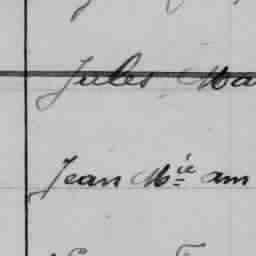 Jules Ma
Jean Mie am